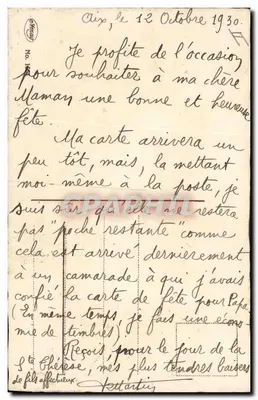 Aix, le 12 Octobre 1930.
Je profite de l'occasion
pour souhaiter à ma chère
Maman une bonne et heureuse
fête.
Ma carte arrivera un
peu tôt, mais, la mettant
moi-même à la poste, je
suis sûr qu'elle ne restera
pas "poche restante" comme
cela est arrivé dernièrement
à un camarade à qui j'avais
confié la carte de fête pour Papa
(En même temps, je fais une écono
mie de timbres)
Reçois, pour le jour de la
Ste Thérèse, mes plus tendres baisers
de fils affectueux.